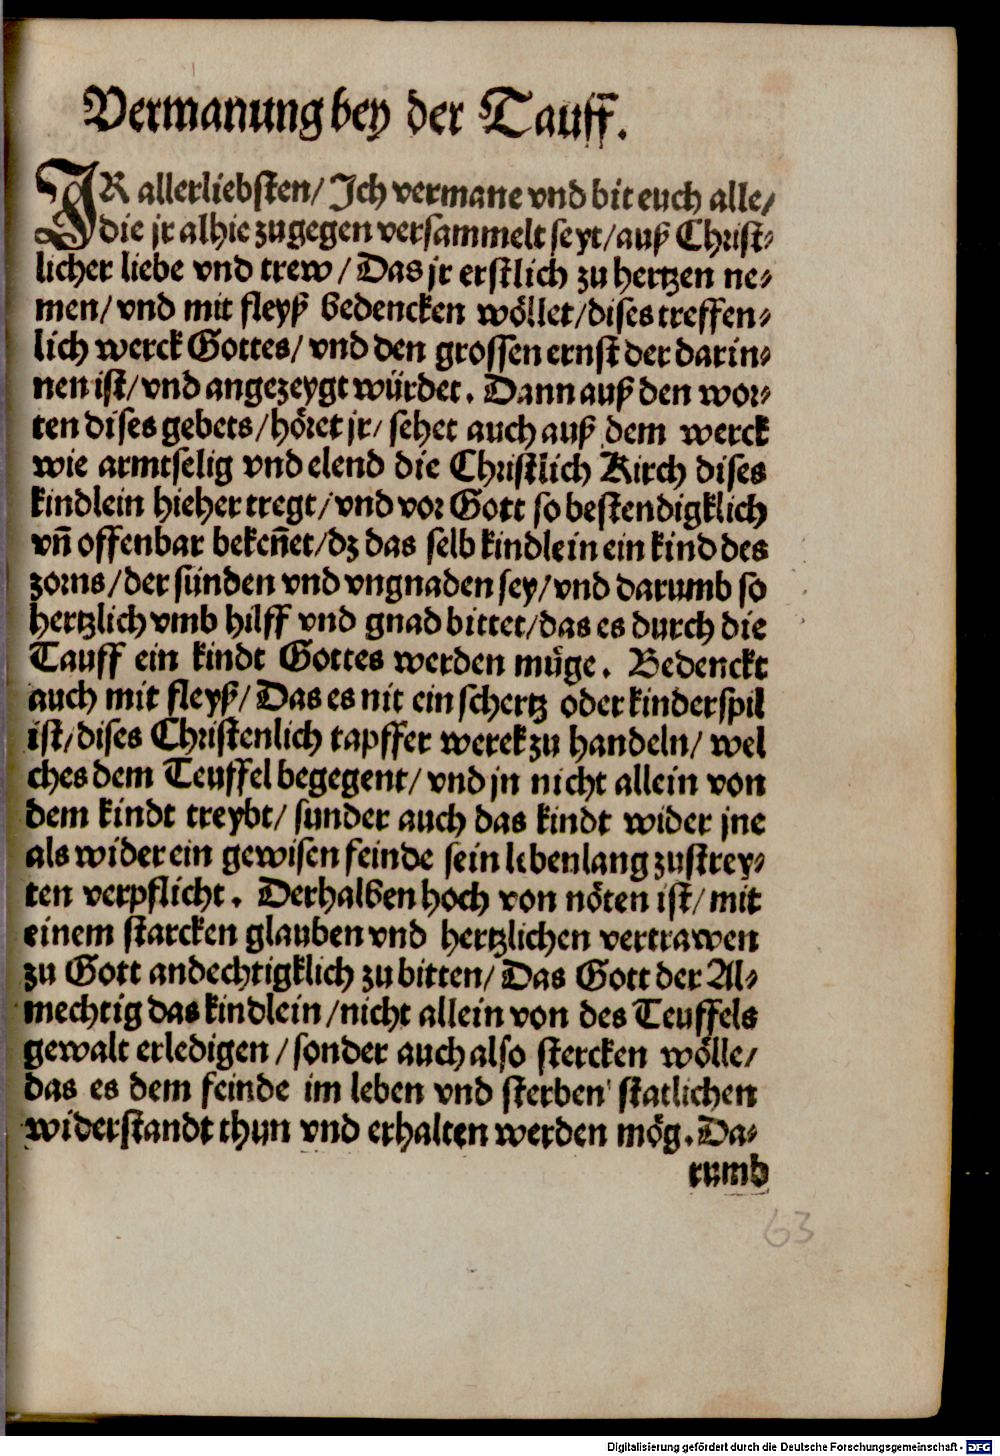 Vermanung bey der Tauff.
IR allerliebsten/ Ich vermane vnd bit euch alle/
die jr alhie zugegen versammelt seyt/ auß Christ-
licher liebe vnd trew/ Das jr erstlich zu hertzen ne-
men/ vnd mit fleyß bedencken wöllet/ dises treffen-
lich werck Gottes/ vnd den grossen ernst der darin-
nen ist/ vnd angezeygt würdet. Dann auß den wor-
ten dises gebets/ höret jr/ sehet auch auß dem werck
wie armtselig vnd elend die Christlich Kirch dises
kindlein hieher tregt/ vnd vor Gott so bestendigklich
vñ offenbar bekeñet/ dz das selb kindlein ein kind des
zorns/ der sünden vnd vngnaden sey/ vnd darumb so
hertzlich vmb hilff vnd gnad bittet/ das es durch die
Tauff ein kindt Gottes werden müge. Bedenckt
auch mit fleyß/ Das es nit ein schertz oder kinderspil
ist/ dises Christenlich tapffer werek zu handeln/ wel
ches dem Teuffel begegent/ vnd jn nicht allein von
dem kindt treybt/ sunder auch das kindt wider jne
als wider ein gewisen feinde sein lebenlang zustrey-
ten verpflicht. Derhalben hoch von nöten ist/ mit
einem starcken glauben vnd hertzlichen vertrawen
zu Gott andechtigklich zu bitten/ Das Gott der Al-
mechtig das kindlein/ nicht allein von des Teuffels
gewalt erledigen/ sonder auch also stercken wölle/
das es dem feinde im leben vnd sterben statlichen
widerstandt thun vnd erhalten werden mög. Da-
rumb
63
Digitalisierung gefördert durch die Deutsche Forschungsgemeinschaft - DFG